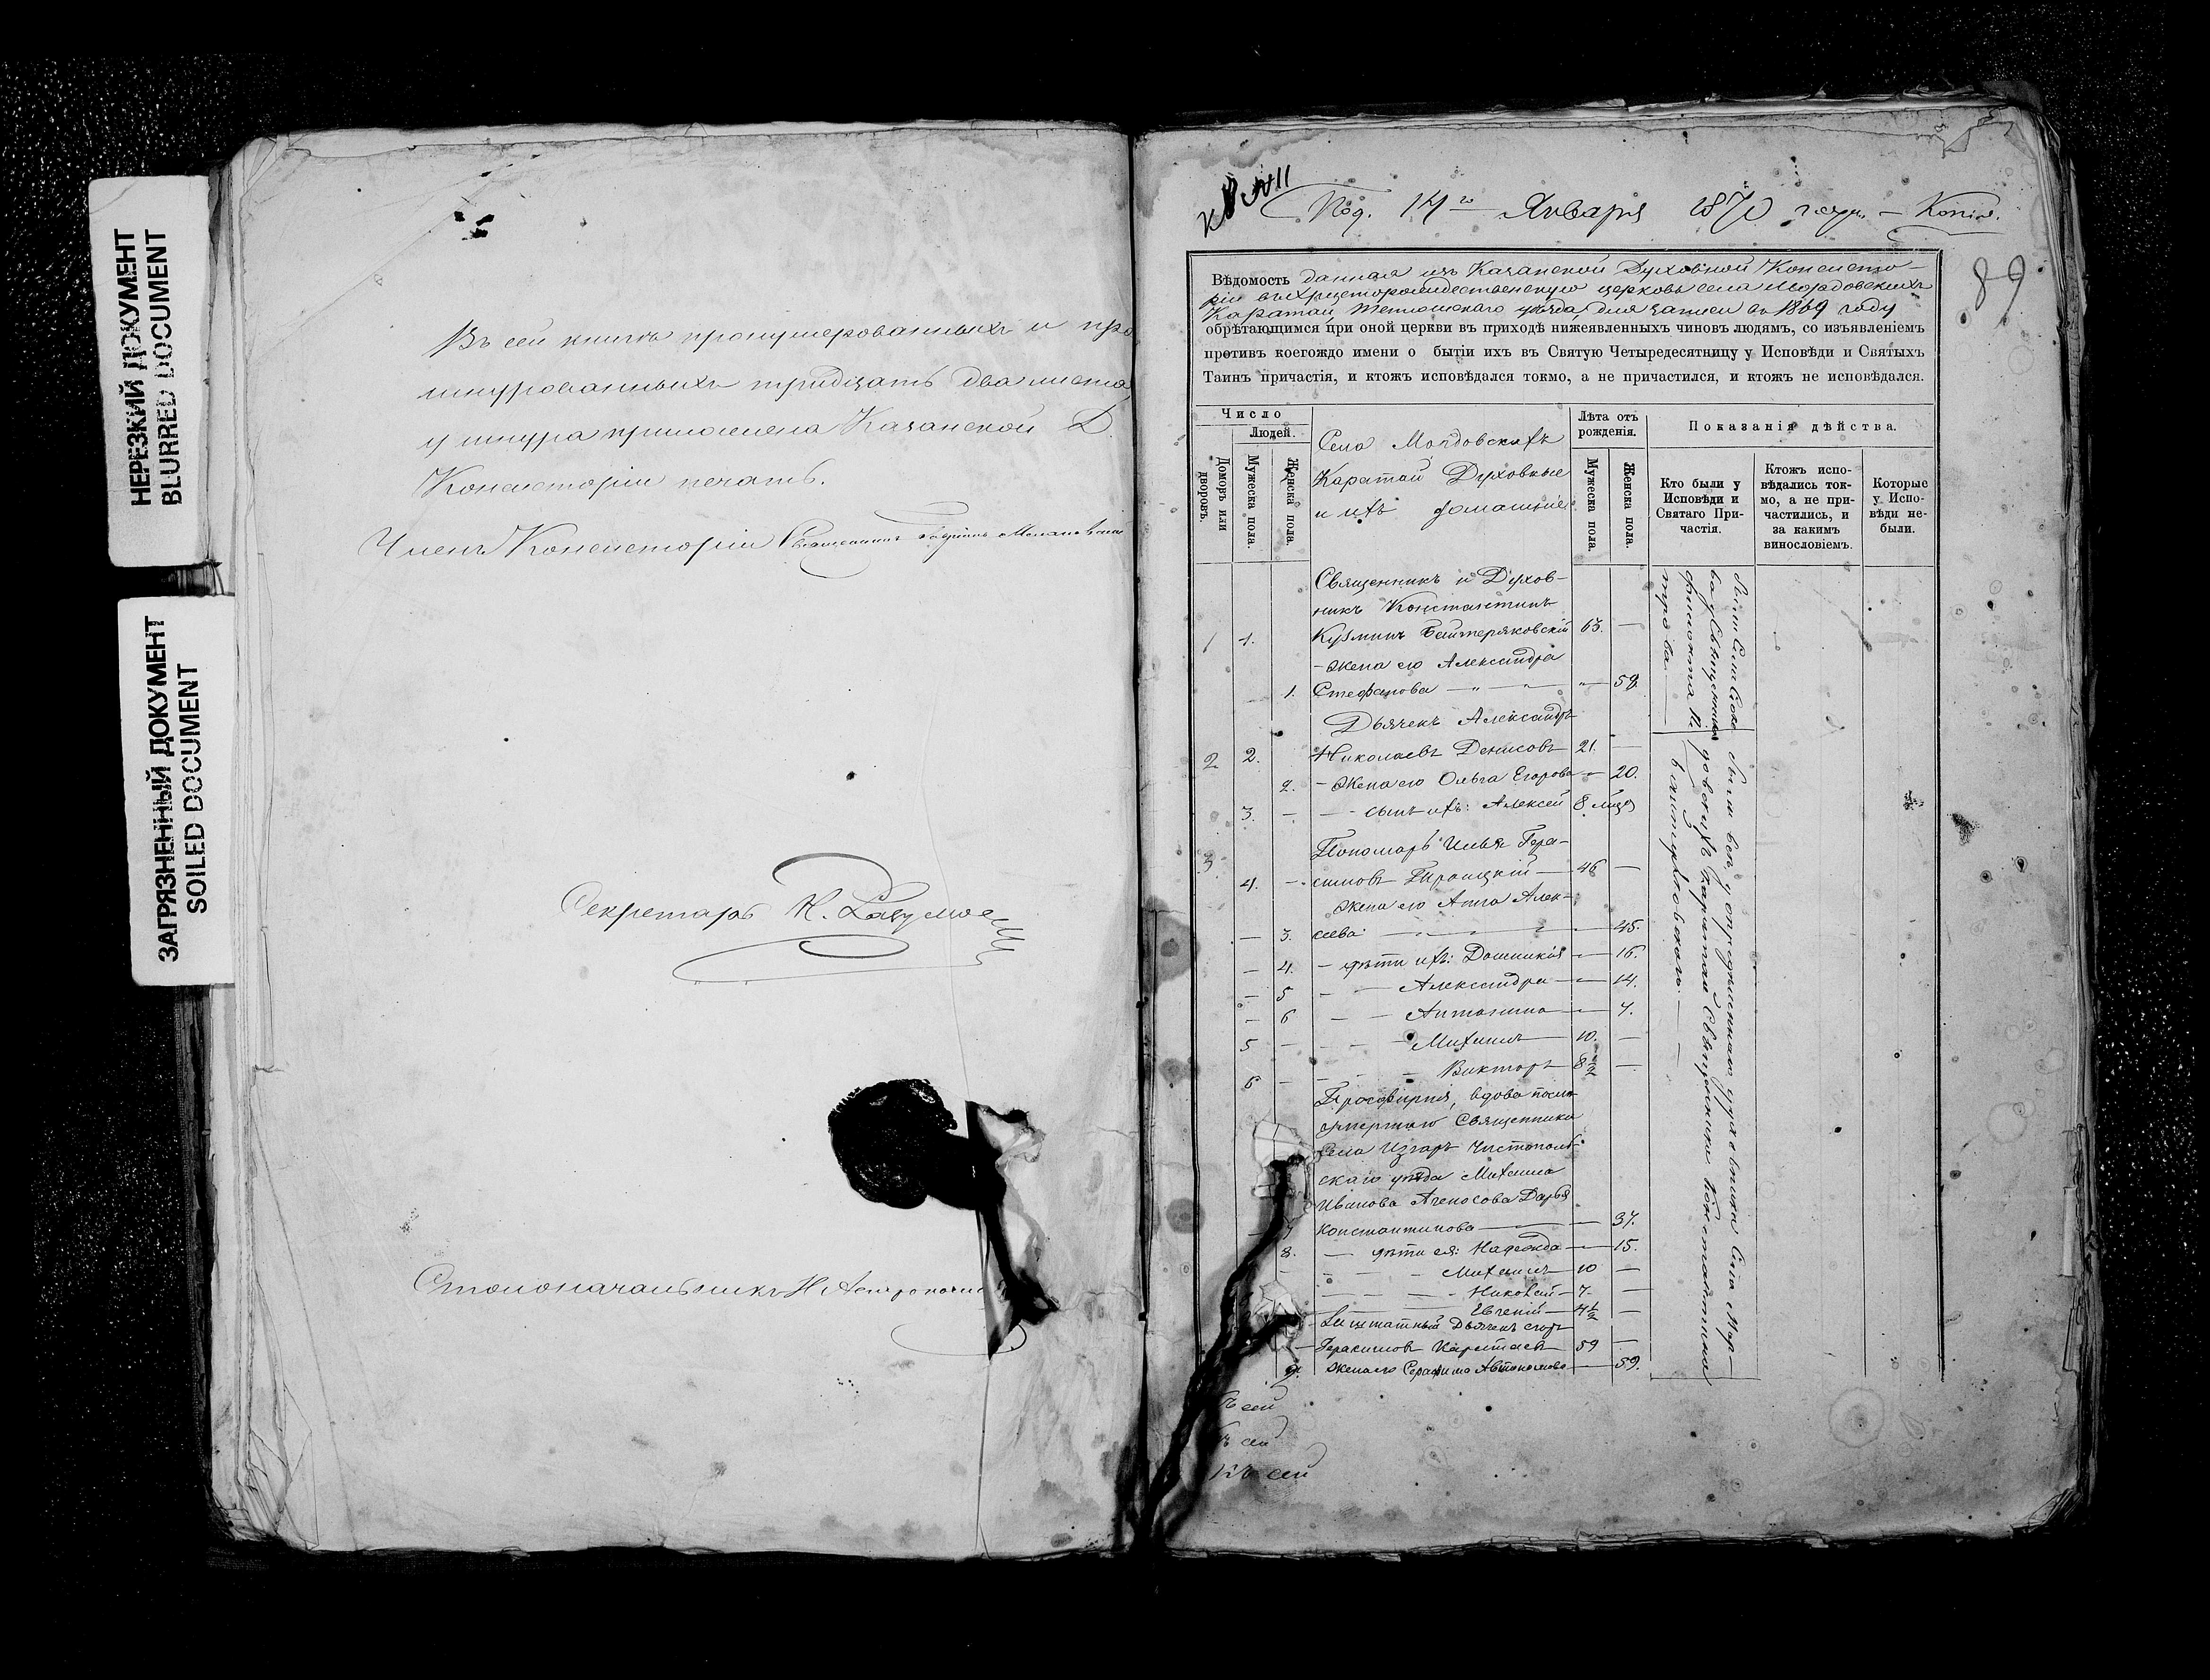 НЕРЕЗКИЙ ДОКУМЕНТ
BLURRED DOCUMENT
ЗАГРЯЗНЕННЫЙ ДОКУМЕНТ
SOILED DOCUMENT
Въ сей книгѣ пронумерованныхъ и про
шнурованныхъ тридцать два листа,
у шнура приложена Казанской Д.
Консисторіи печать.
Членъ Консисторіи Священникъ
Секретарь Н. Разумов
Столоначальникъ Н
Под. 14го Января 1870 года. – Копія.
89
Вѣдомость данная изъ Казанской Духовной Консисто-
ріи въ Христорождественскую церковь села Мордовскихъ
Каратай Тетюшскаго уѣзда, для записи въ 1869 году
обрѣтающимся при оной церкви въ приходѣ нижеявленныхъ чиновъ людямъ, со изъявленіемъ
противъ коегождо имени о бытіи ихъ въ Святую Четыредесятницу у Исповѣди и Святыхъ
Таинъ причастія, и ктожъ исповѣдался токмо, а не причастился, и ктожъ не исповѣдался.
Число
Людей.
Домовъ или дворовъ.
Мужеска пола.
Женска пола.
Села Мордовскихъ
Каратай Духовные
и ихъ домашніе
Лѣта отъ рожденія.
Мужеска пола.
Женска пола.
Показанія дѣйства.
Кто были у Исповѣди и Святаго Причастія.
Ктожъ исповѣдались токмо, а не причастились, и за какимъ винословіемъ.
Которые у Исповѣди небыли.
Священникъ и Духов-
никъ Константинъ
1 1. Кузминъ Бейтеряковскій 63. —
- жена его Александра
1. Стефанова — " — " — 59.
Дьячекъ Александръ
2 2. Николаевъ Денисовъ 21. —
2. - Жена его Ольга Егорова — 20.
3. — сынъ ихъ: Алексѣй 8 мѣся
Пономарь Илья Гера-
3 4. - симовъ Троицкій — 46 —
жена его Анна Алек-
— 3. сѣева — 45.
— 4. - дѣти ихъ: Домникія — 16.
— 5 — Александра — 14.
— 6 — Антонина — 7.
5 — Михаилъ — 10. —
6 — Викторъ 8 —
Просфирня, вдова послѣ
умершаго Священника
Села Изгаръ Чистополь-
скаго уѣзда Михаила
Иванова Дарья
7 Константинова — 37.
8. — дѣти ея: Надежда — 15.
Михаилъ — 10 —
Николай — 7 —
Евгеній — 4½ —
Заштатный Дьячекъ Егоръ
Герасимовъ 59 —
9. Жена его Серафима Автономова — 59.
ъ сей
ъ сей
къ сей